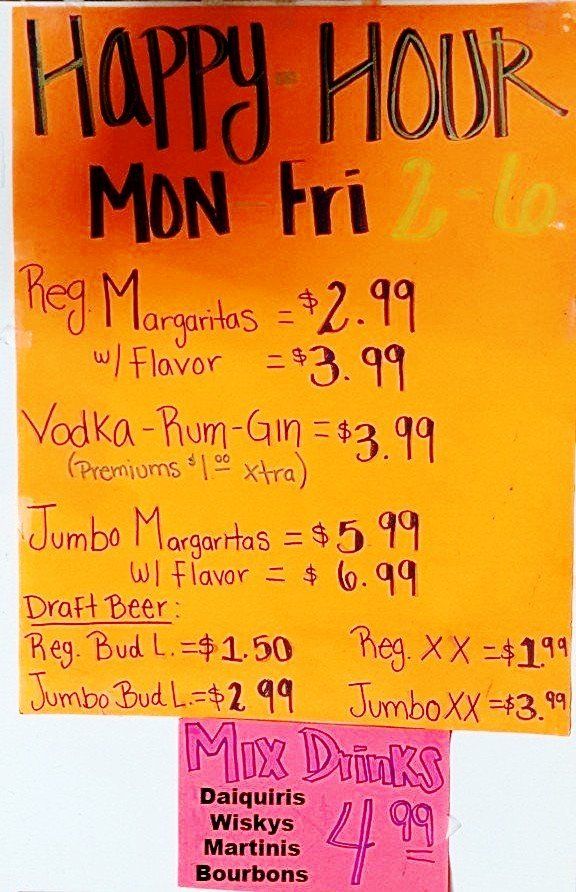 Happy-Hour
Mon-Fri 2-6
Reg Margaritas = $2.99
w/ Flavor = $3.99
Vodka-Rum-Gin = $3.99
(Premiums $1.00 xtra)
Jumbo Margaritas = $5.99
w/ Flavor = $6.99
Draft Beer:
Reg. Bud L. = $1.50 Reg. XX = $1.99
Jumbo Bud L. = $2.99 Jumbo XX = $3.99
Mix Drinks
Daiquiris
Wiskys
Martinis
Bourbons
4.99